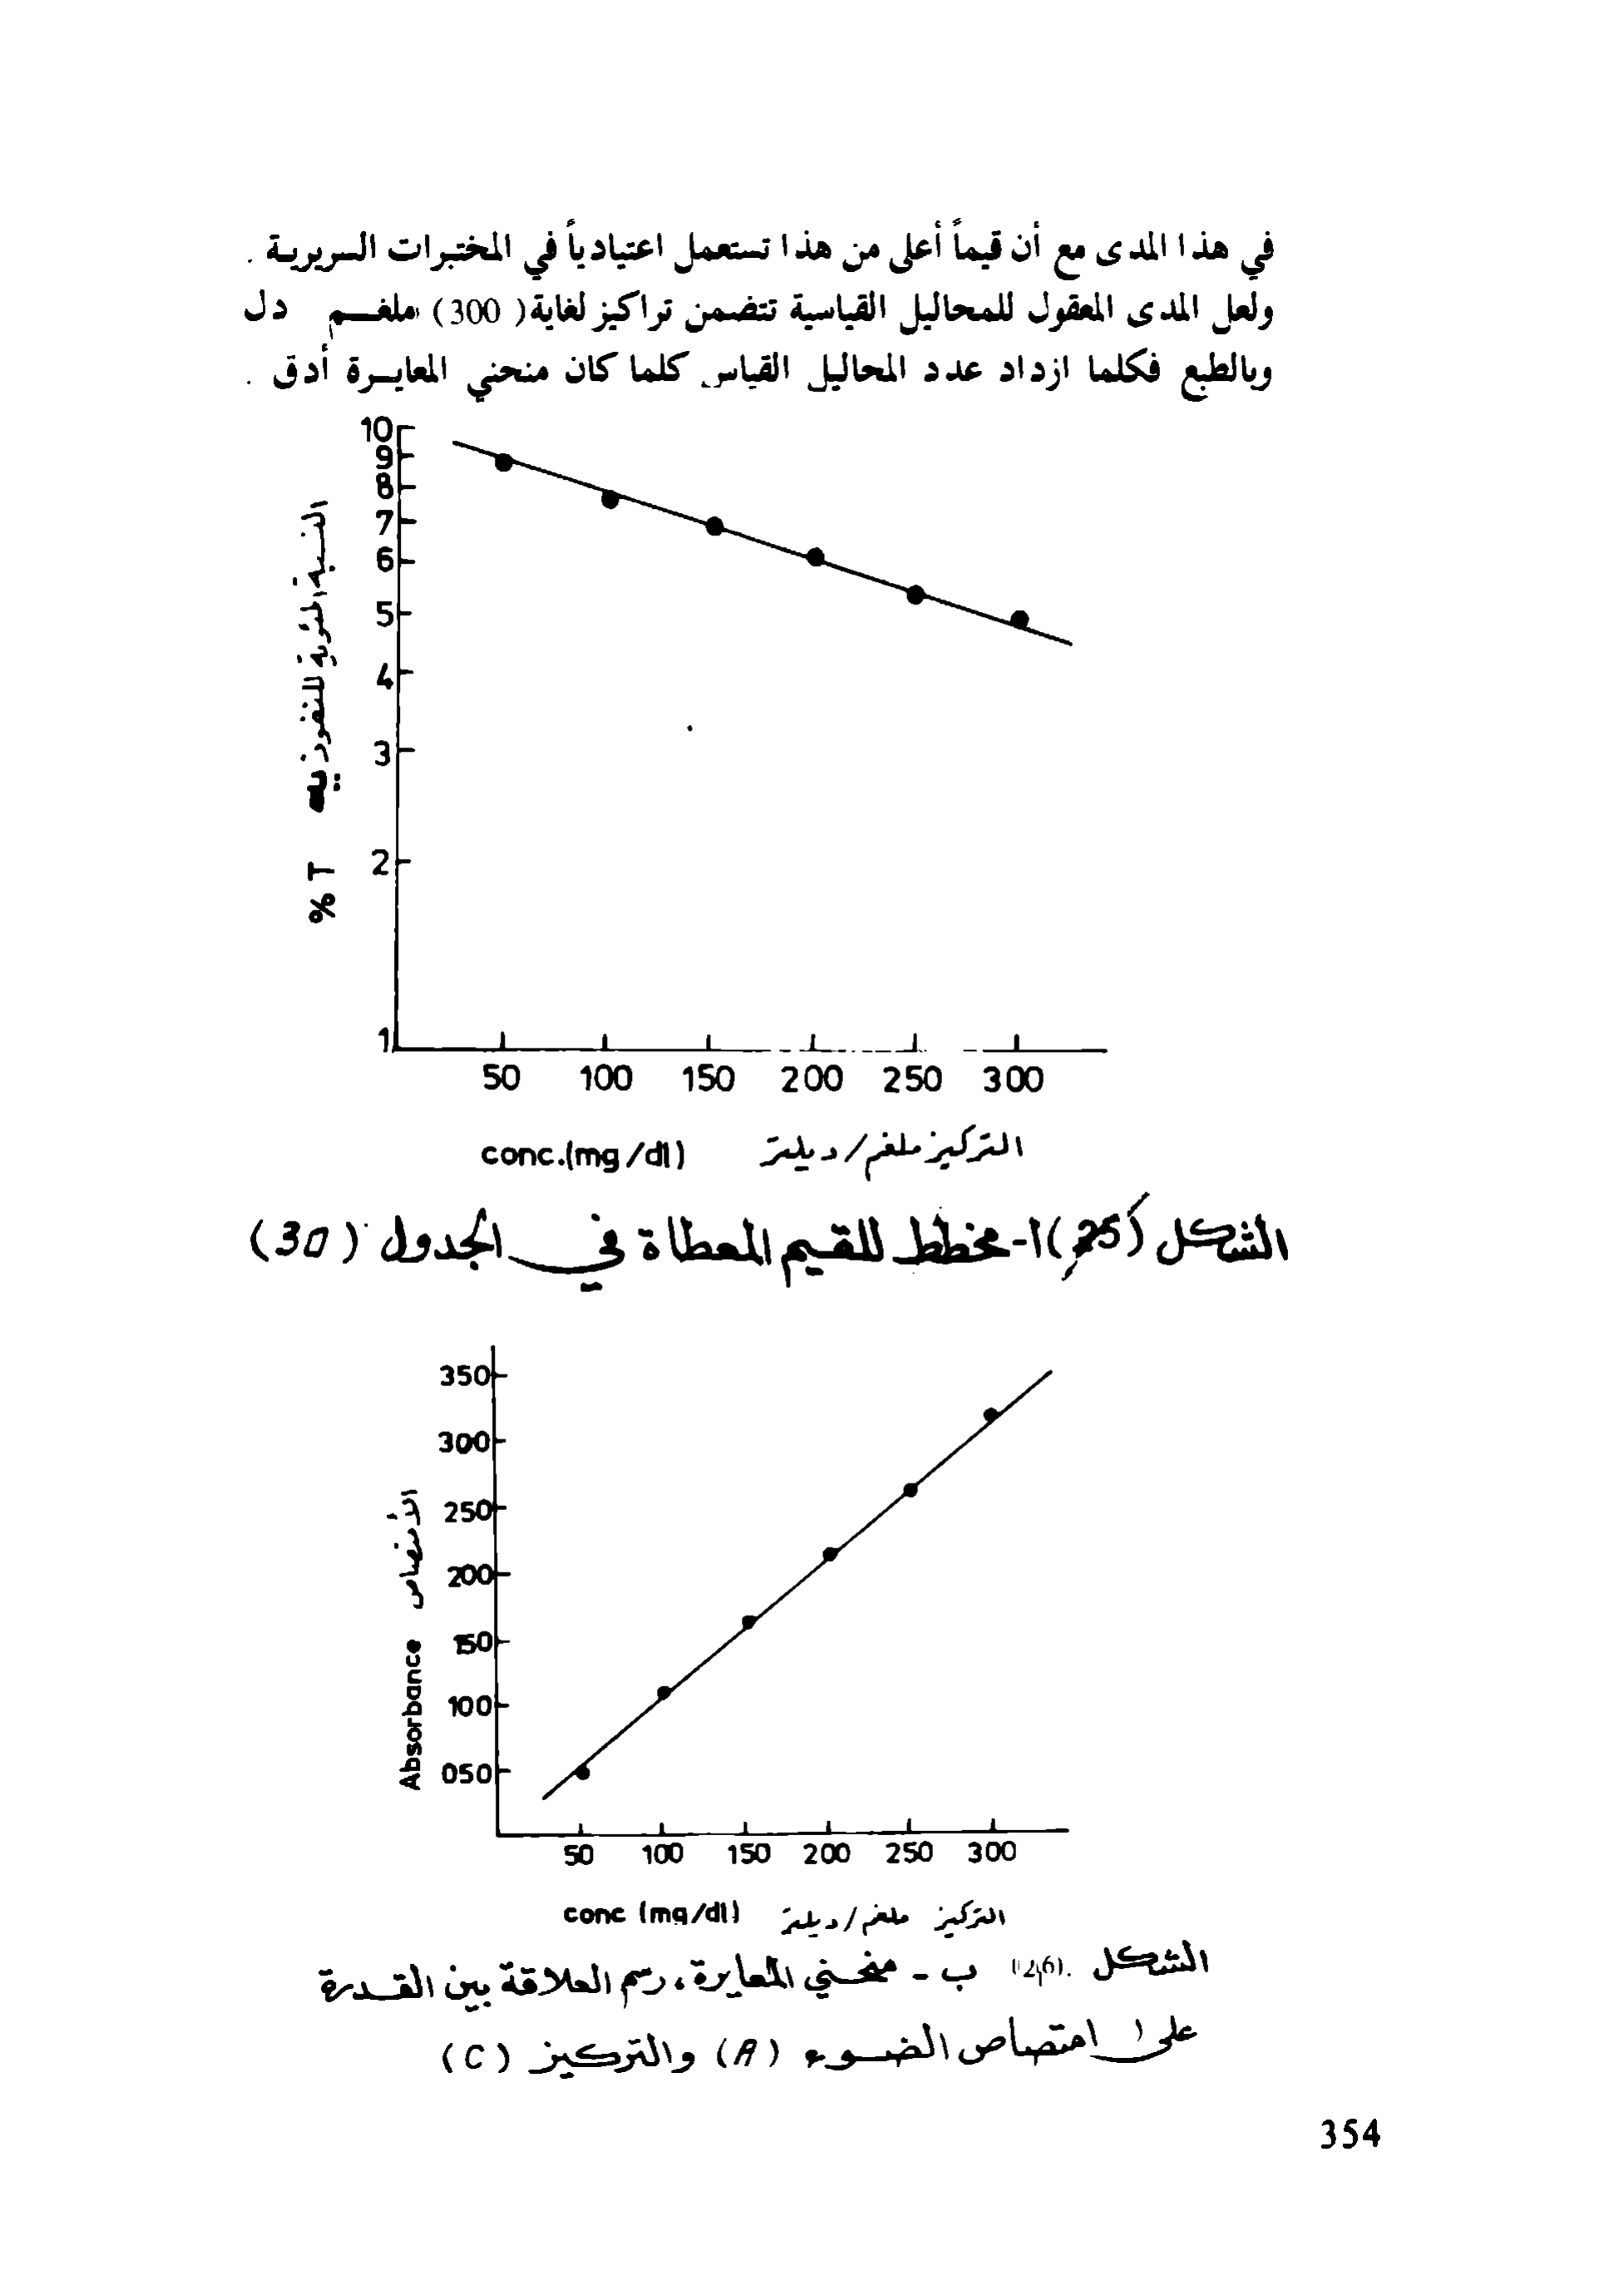 في هذا المدى مع أن قيماً أعلى من هذا تستعمل اعتيادياً في المختبرات السريرية .
ولعل المدى المعقول للمحاليل القياسية تتضمن تراكيز لغاية ( 300 ) ملغم دل
وبالطبع فكلما ازداد عدد المحاليل القياس كلما كان منحني المعايرة أدق .
10
9
8
7
6
5
4
3
2
1
النسبة المئوية للنفوذية %T
50 100 150 200 250 300
conc.(mg/dl) التركيز ملغم/ديلتر
الشكل (25) ا- مخطط للقيم المعطاة في الجدول (30)
350
300
250
200
150
100
050
Absorbance الأمتصاص
50 100 150 200 250 300
conc (mg/dl) التركيز ملغم/ديلتر
الشكل (26) ب - منحني المعايرة ، رسم العلاقة بين القدرة
على امتصاص الضوء (A) والتركيز (C)
354